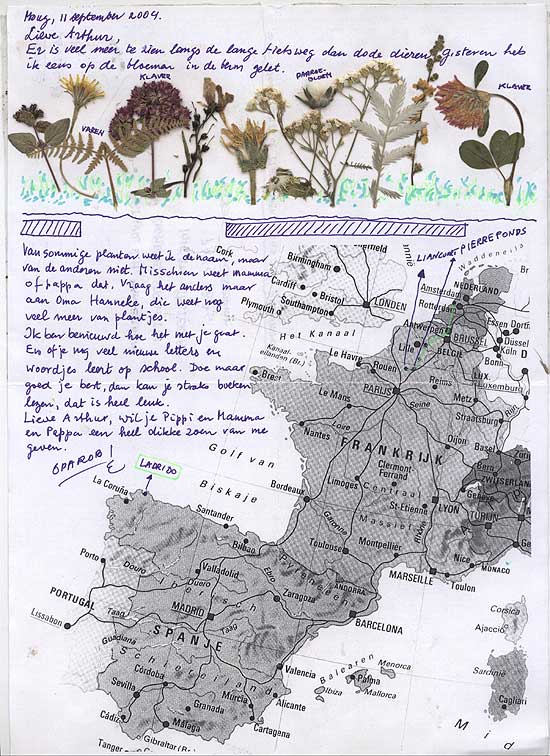 Moug, 11 september 2004.
Lieve Arthur,
Er is veel meer te zien langs de lange fietsweg dan dode dieren, gisteren heb
ik eens op de bloemen in de berm gelet.
KLAVER
VAREN
KLAVER
LIANCOURT
PIERREFONDS
Van sommige planten weet ik de naam, maar
van de anderen niet. Misschien weet mamma
of pappa dat. Vraag het anders maar
aan Oma Hanneke, die weet nog
veel meer van plantjes.
Ik ben benieuwd hoe het met je gaat.
En of je nog veel nieuwe letters en
woordjes leert op school. Doe maar
goed je best, dan kan je straks boeken
lezen, dat is heel leuk.
Lieve Arthur, wil je Pippi en Mamma
en Pappa een heel dikke zoen van me
geven.
OPA ROB!
LABRIDO
Cork
Birmingham
Cardiff
Bristol
Plymouth
Southampton
LONDEN
Het Kanaal
Kanaal-
eilanden (Br.)
Brest
Le Havre
Rouen
Waddeneila
Amsterdam
NEDERLAND
Rotterdam
Antwerpen
Essen
Dortm
Düssel
Köln
Bonn
BRUSSEL
BELGIË
Lille
LUX.
Luxemburg
Reims
Metz
PARIJS
Seine
Straatsburg
Le Mans
Loire
Nantes
Dijon
Basel
Bern
Genève
ZWITSERLAND
FRANKRIJK
Clermont-
Ferrand
Limoges
Centraal
Massief
St-Etienne
LYON
TURIJN
Rhône
Golf van
Biskaje
Bordeaux
Garonne
Toulouse
Montpellier
MARSEILLE
Toulon
Nice
MONACO
Pyreneeën
ANDORRA
La Coruña
Santander
Bilbao
Ebro
Zaragoza
BARCELONA
Porto
Douro
Duero
Valladolid
Iberisch
Schiereiland
PORTUGAL
Lissabon
Taag
MADRID
Taag
SPANJE
Guadiana
Valencia
Alicante
Balearen
Menorca
Palma
Mallorca
Ibiza
Córdoba
Sevilla
Granada
Murcia
Cartagena
Cádiz
Málaga
Gibraltar (Br.)
Tanger
Corsica
Ajaccio
Sardinië
Cagliari
Mid